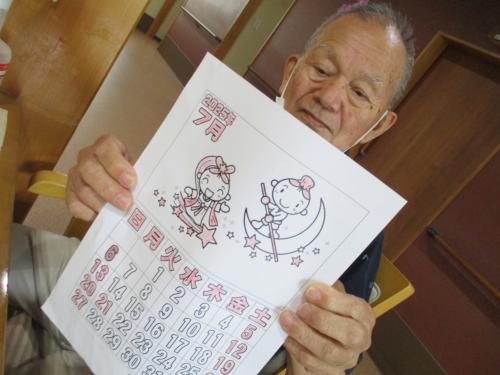 2025年
7月
日 月 火 水 木 金 土
1 2 3 4 5
6 7 8 9 10 11 12
13 14 15 16 17 18 19
20 21 22 23 24 25
27 28 29 30 31